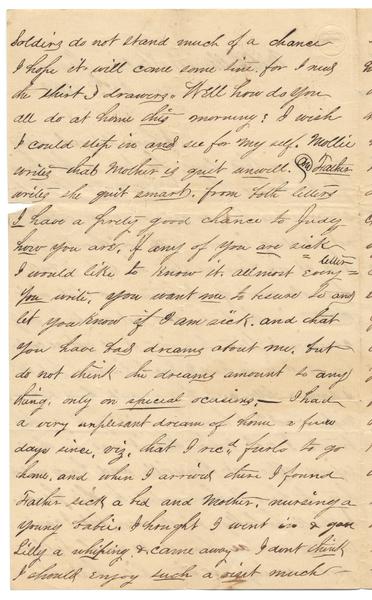 Soldiers do not stand much of a chance
I hope it will come some time. for I need
the shirt & drawers. Well how do you
all do at home this morning? I wish
I could step in and see for my self. Mollie
writes that Mother is quit unwell. Father
writes she quit smart. from both letters
I have a pretty good chance to Judge
how you are. If any of you are sick
I would like to know it. allmost every letter =
you write. you want me to besure to and
let you know if I am sick. and that
you have bad dreams about me. but
do not think the dreams amount to any
thing. only on special ocasions. — I had
a very unplesent dream of home a few
days since, viz, that I rec.d furlo to go
home. and when I arrived there I found
Father sick a bed and Mother. nursing a
young babie. I thought I went in & gave
Lilly a whiping & came away — I dont think
I should enjoy such a visit much —